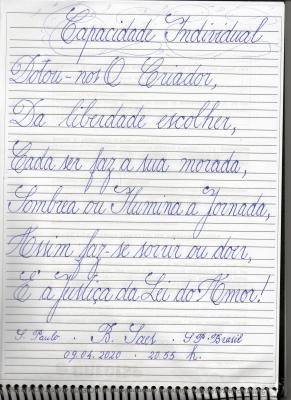 Capacidade Individual
Dotou-nos O Criador,
Da liberdade escolher,
Cada ser faz a sua morada,
Sombrea ou Ilumina a Jornada,
Assim faz-se sorrir ou doer,
É a Justiça da Lei do Amor!
S. Paulo . B. Saes . SP. Brasil
09.04.2020 . 20:55 h.